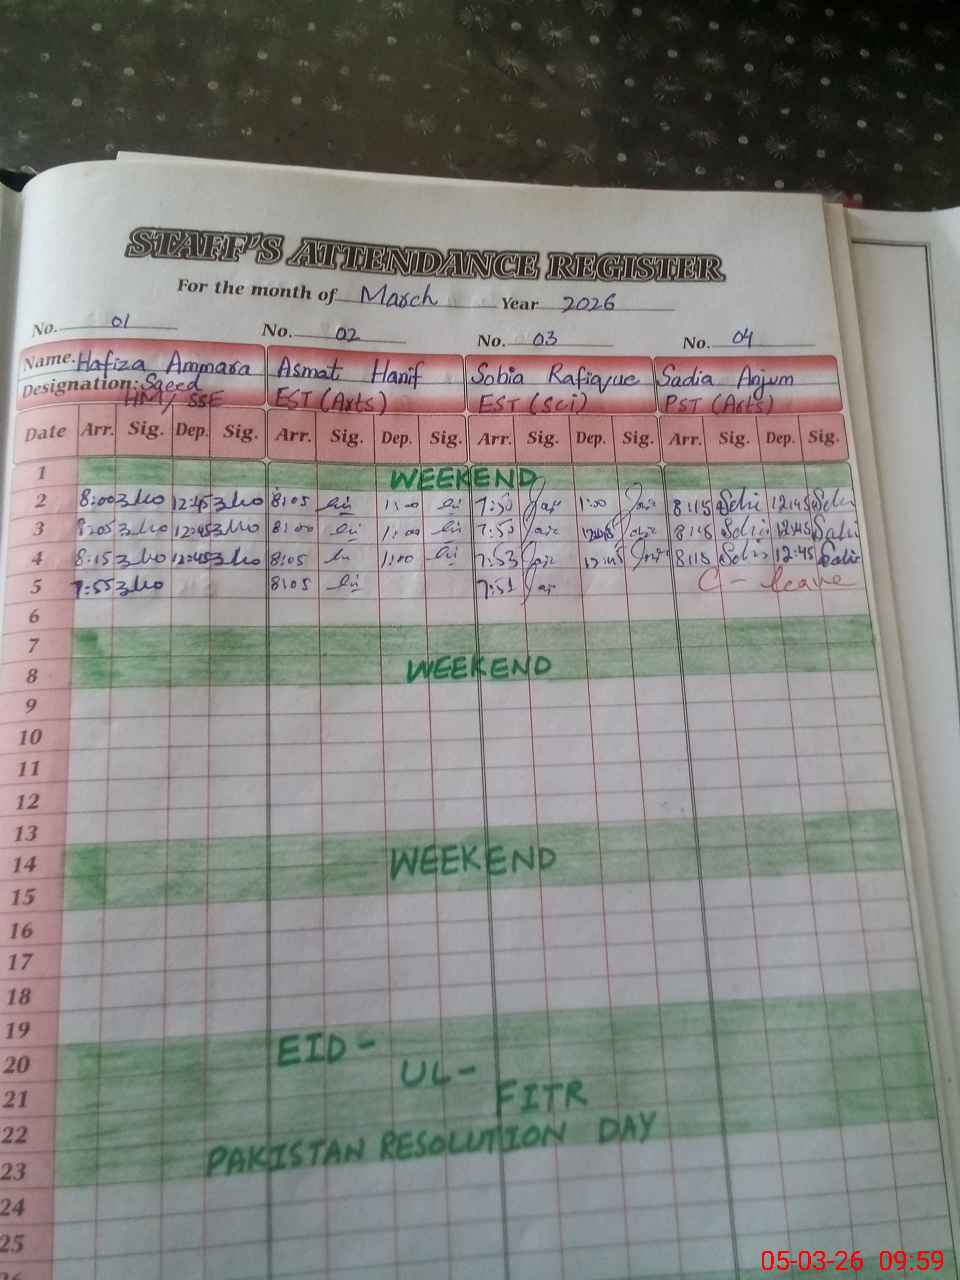 STAFF'S ATTENDANCE REGISTER
For the month of March Year 2026
No. 01 No. 02 No. 03 No. 04
Name. Hafiza Ammara Asmat Hanif Sobia Rafique Sadia Anjum
Designation: Saeed
HM/ SSE EST (Arts) EST (Sci) PST (Arts)
Date Arr. Sig. Dep. Sig. Arr. Sig. Dep. Sig. Arr. Sig. Dep. Sig. Arr. Sig. Dep. Sig.
1 WEEKEND
2 8:00 12:45 8:05 1:00 7:50 1:00 8:15 12:45
3 8:05 12:45 8:00 1:00 7:50 12:45 8:15 12:45
4 8:15 12:45 8:05 1:00 7:53 12:45 8:15 12:45
5 7:55 8:05 7:51 C - leave
6
7
8 WEEKEND
9
10
11
12
13
14 WEEKEND
15
16
17
18
19
20 EID -
21 UL -
22 FITR
23 PAKISTAN RESOLUTION DAY
24
25
26
05-03-26 09:59